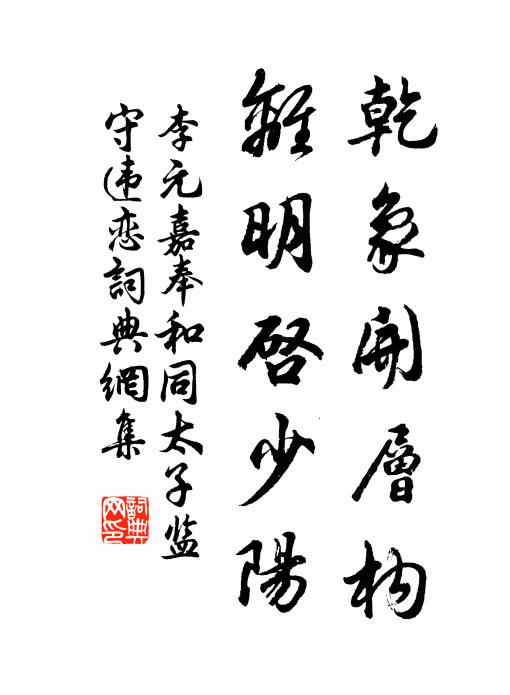 乾象開層构
離明啓少陽
李元嘉奉和同太子监
守违恋詞典網集
詞典網印